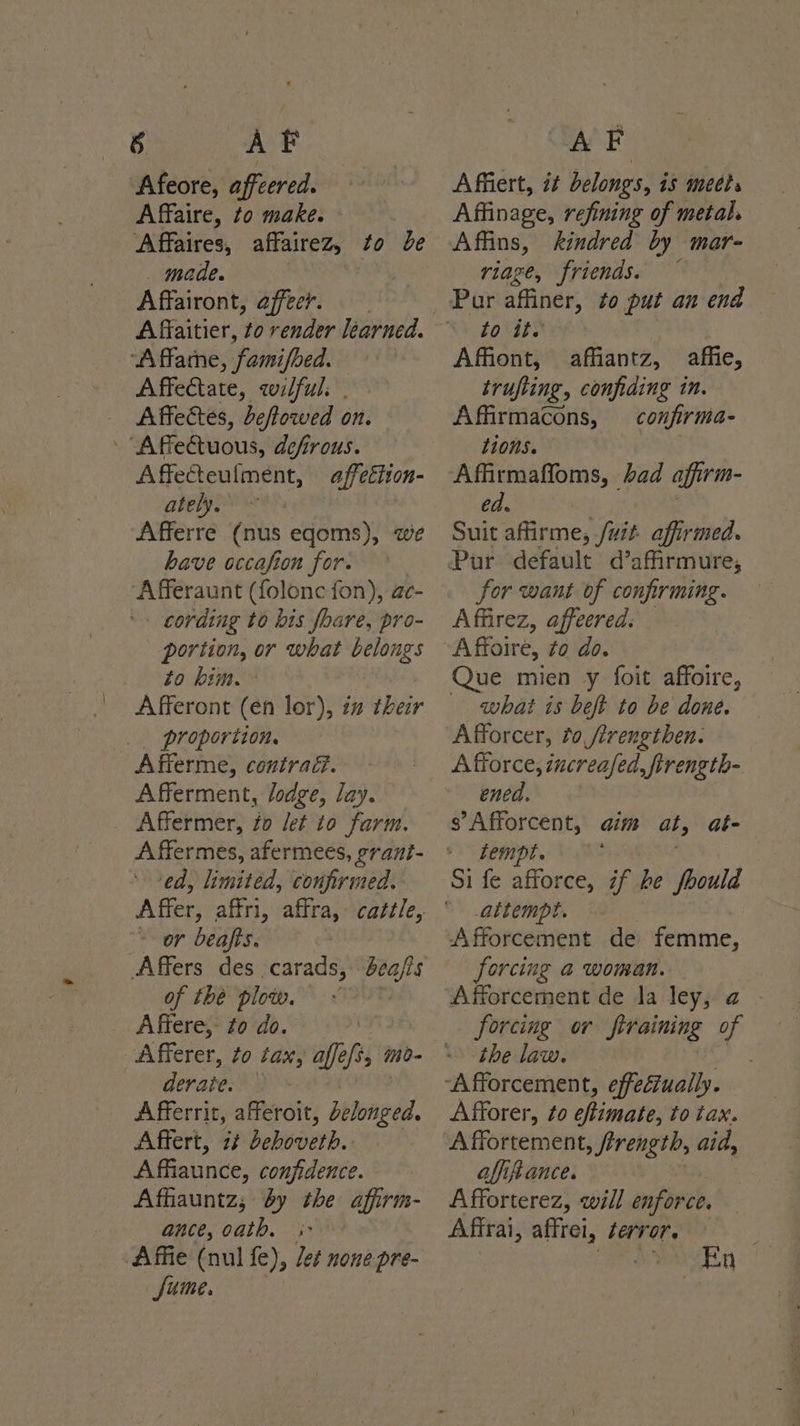 6 A F
Afeore, affeered.
Affaire, to make.
Affaires, affairez, to be
made.
Affairont, affeer.
Affaitier, to render learned.
Affame, famiſhed.
Affectate, wilful.
Affectes, beſtowed on.
Affectuous, deſirous.
Affecteuſment, affection-
ately.
Afferre (nus eqoms), we
have occaſion for.
Afferaunt (ſolonc ſon), ac-
cording to his ſhare, pro-
portion, or what belongs
to him.
Afferont (en lor), in their
proportion.
Afferme, contract.
Afferment, lodge, lay.
Affermer, to let to farm.
Affermes, afermees, grant-
ed, limited, confirmed.
Affer, affri, affra, cattle,
or beaſts.
Affers des carads, beaſts
of the plow.
Affere, to do.
Afferer, to tax, aſſeſs, mo-
derate.
Afferrit, afferoit, belonged.
Affert, it behoveth.
Affiaunce, confidence.
Affiauntz, by the affirm-
ance, oath.
Affie (nul ſe), let none pre-
ſume.
A F
Affiert, it belongs, is meet.
Affinage, refining of metal.
Affins, kindred by mar-
riage, friends.
Pur affiner, to put an end
to it.
Affiont, affiantz, affie,
truſting, confiding in.
Affirmacons, confirma-
tions.
Affirmaſſoms, had affirm-
ed.
Suit affirme, ſuit affirmed.
Pur default d'affirmure,
for want of confirming.
Affirez, affeered.
Affoire, to do.
Que mien y ſoit affoire,
what is beſt to be done.
Afforcer, to ſtrengthen.
Afforce, increaſed, ſtrength-
ened.
s'Afforcent, aim at, at-
tempt.
Si ſe afforce, if he ſhould
attempt.
Afforcement de femme,
forcing a woman.
Afforcement de la ley, a
forcing or ſtraining of
the law.
Afforcement, effectually.
Afforer, to eſtimate, to tax.
Affortement, ſtrength, aid,
aſſiſtance.
Afforterez, will enforce.
Affrai, affrei, terror.
En